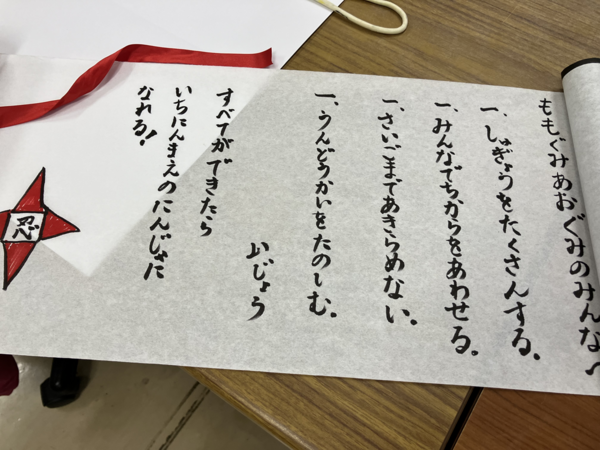 ももぐみあおぐみのみんなへ
一、しゅぎょうをたくさんする。
一、みんなでちからをあわせる。
一、さいごまであきらめない。
一、うんどうかいをたのしむ。
いじょう
すべてができたら
いちにんまえのにんじゃに
なれる!
忍